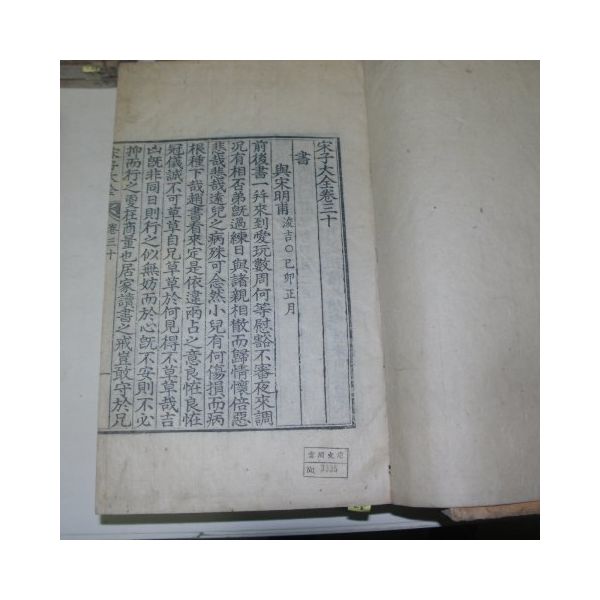 宋子大全卷三十
書
與宋明甫 浚吉○己卯正月
前後書一幷來到愛玩數周何等慰豁不審夜來調
況有相否弟旣過練日與諸親相散而歸情懷倍惡
悲哉悲哉遠兒之病殊可念然小兒有何傷損而病
根種下哉趙書看來定是依違兩占之意良恠良恠
冠儀誠不可草草自兄草草於何見得不草草哉吉
凶旣非同日則行之似無妨而於心旣不安則不必
抑而行之更在商量也居家讀書之戒豈敢守於兄
宋子大全 卷三十
No 3335